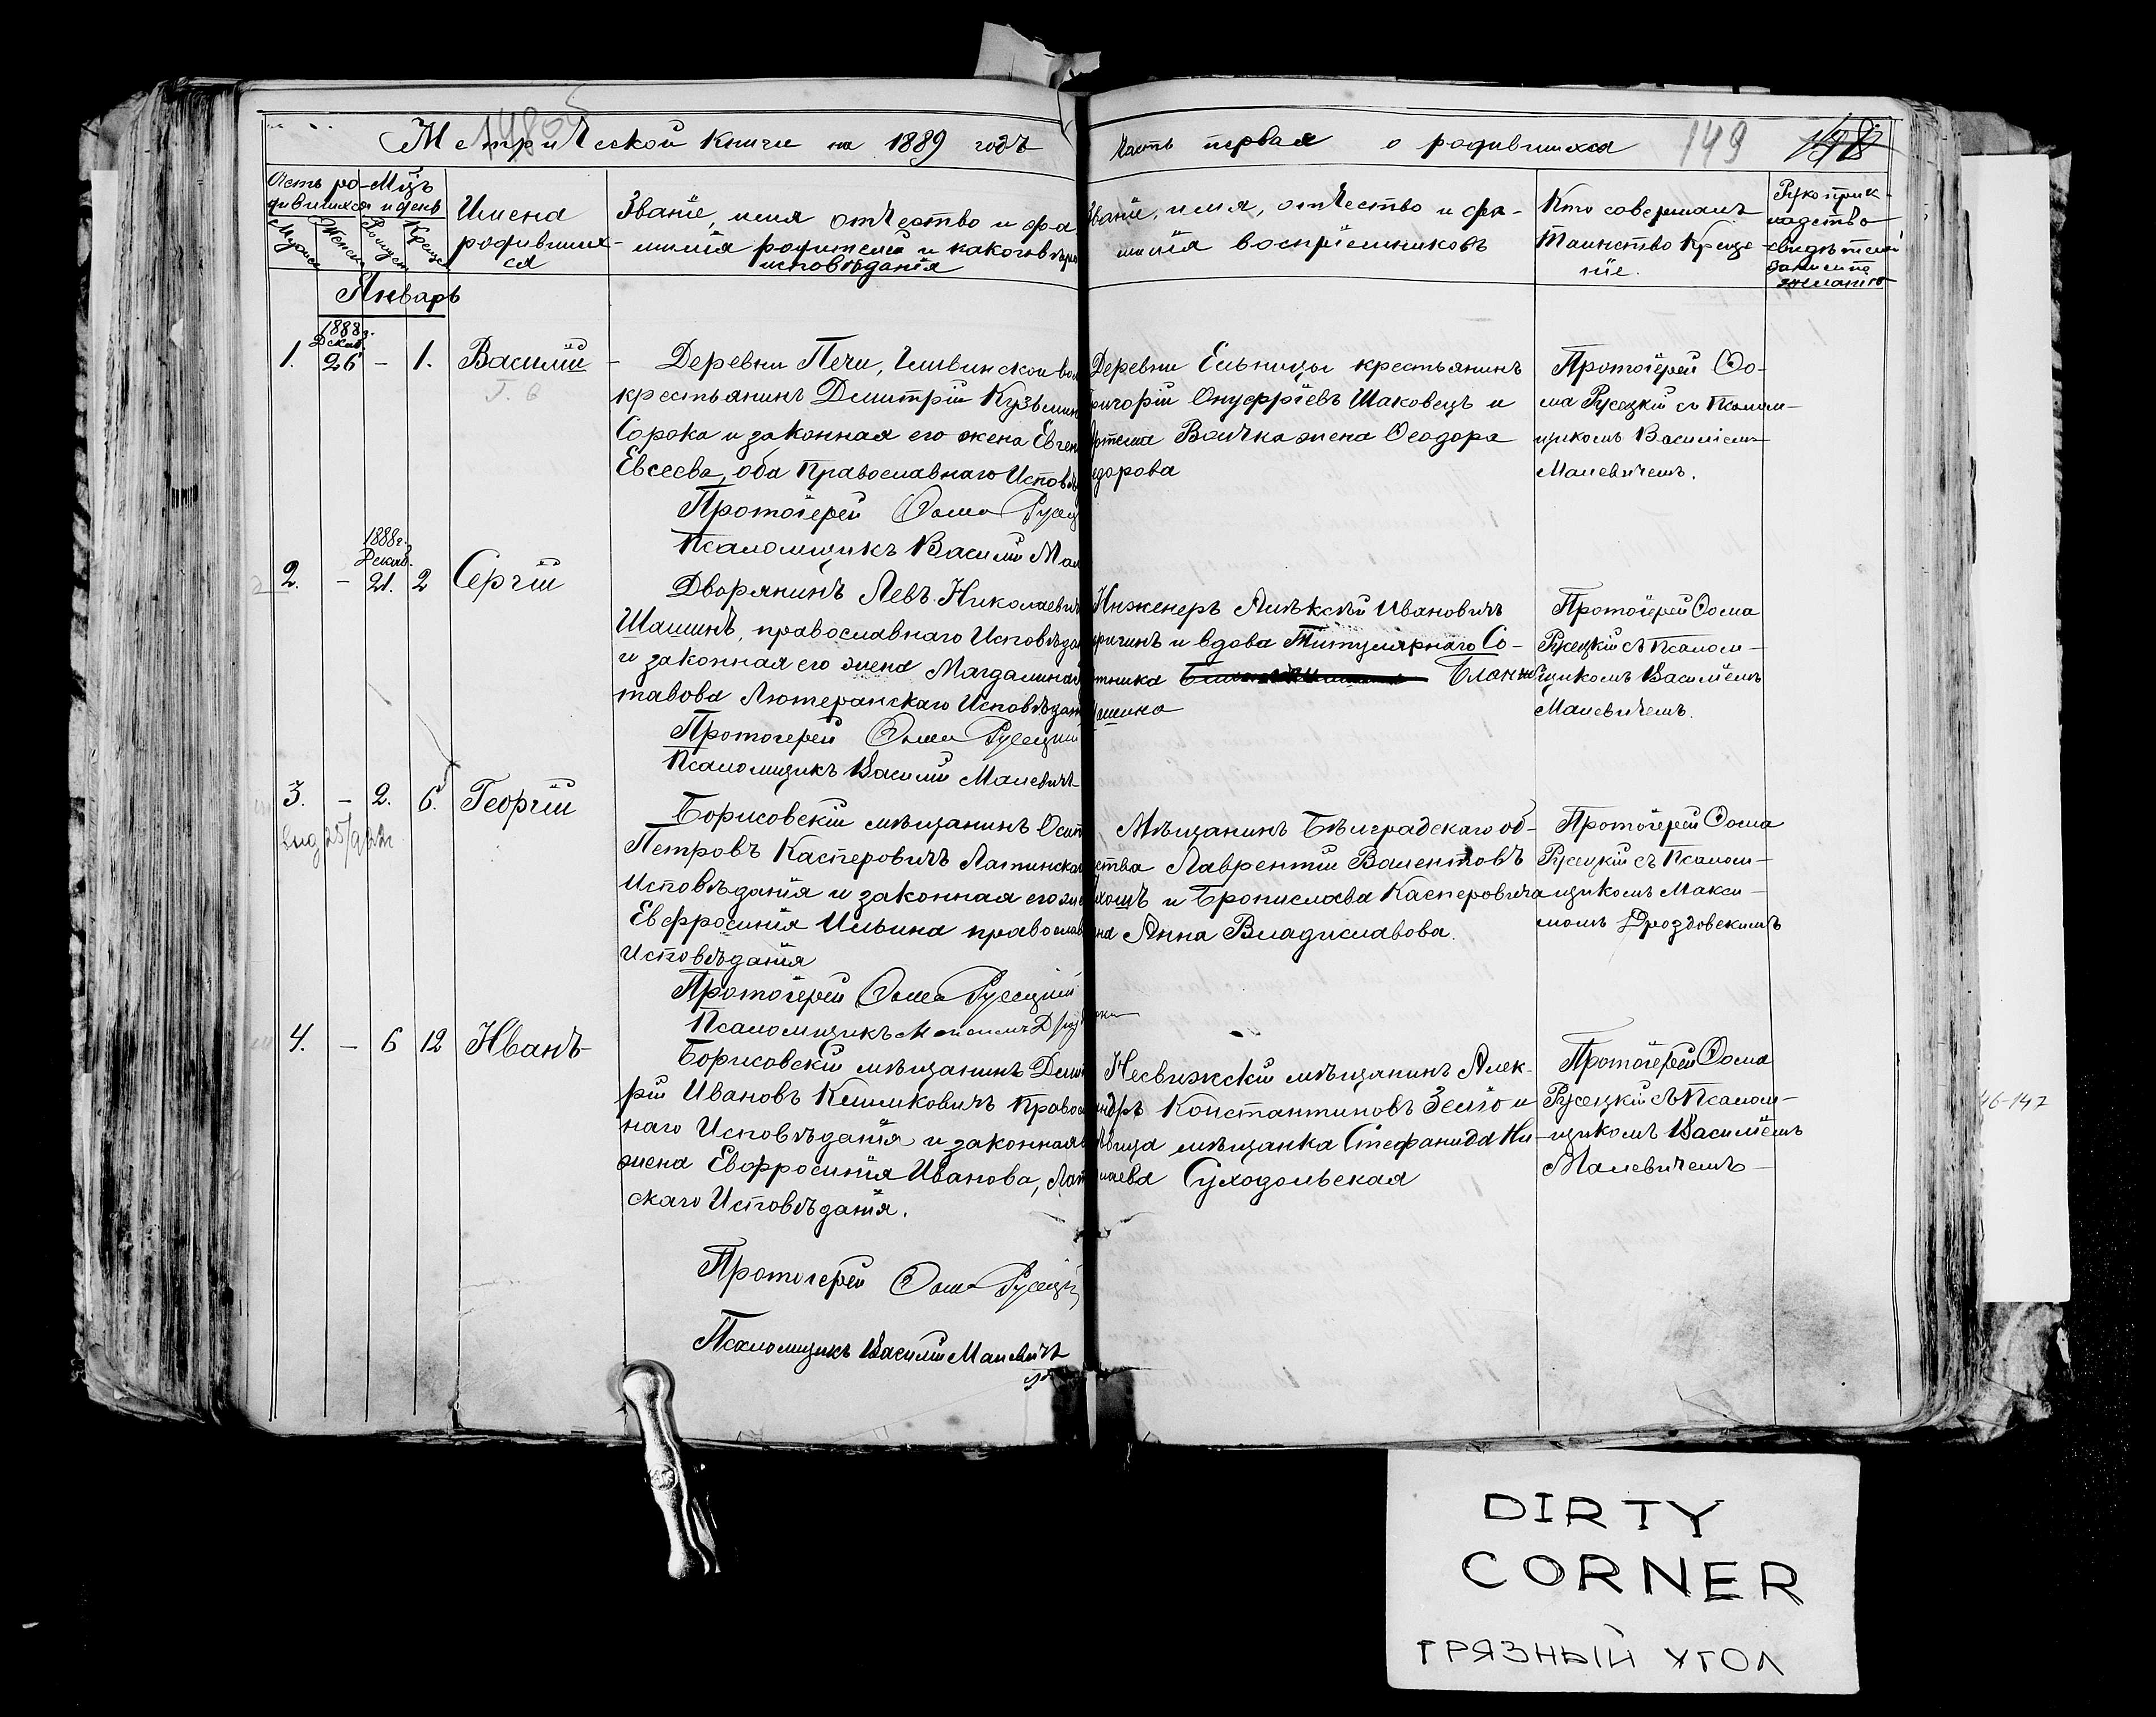 Метрической книги на 1889 годъ
Часть первая о родившихся 149
Счетъ ро-
дившихся
Мужск
Женск
М-цъ
и день
Рожден
Крещен
Имена
родивших-
ся
Званіе, имя отчество и фа
милія родителей и какого вѣро
исповѣданія
Званіе, имя, отчество и фа-
милія воспріемниковъ
Кто совершалъ
Таинство Креще-
ніе.
Рукоприк-
ладство
свидѣтелей
записи по
желанію
Январь
1888 г.
Декаб.
1. 26 - 1. Василій
Деревни Печи, Гливинской вол
крестьянинъ Димитрій Кузьмин
Сорока и законная его жена Евген
Евсеева, оба Православнаго Исповѣд
Протоіерей Ѳома Русец
Псаломщикъ Василій Мал
Деревни Ельницы крестьянинъ
ригорій Онуфріевъ Шаковецъ и
ртема Волчка жена Ѳеодора
едорова
Протоіерей Ѳо-
ма Русецкій съ Псалом-
щикомъ Василіемъ
Малевичемъ.
1888 г.
Декаб.
2. - 21. 2 Сергій
Дворянинъ Левъ Николаевич
Шашинъ, православнаго Исповѣдан
и законная его жена Магдалина
тавова Лютеранскаго Исповѣдан
Протоіерей Ѳома Русецкій
Псаломщикъ Василій Малевичъ
Инженеръ Алѣксѣй Ивановичъ
ригинъ и вдова Титулярнаго Со-
тника
ашина
Протоіерей Ѳома
Русецкій съ Псалом-
щикомъ Василіемъ
Малевичемъ.
3. - 2. 6. Георгій
Борисовскій мѣщанинъ Осип
Петровъ Касперовичъ Латинскаг
Исповѣданія и законная его же
Евфросинія Ильина православ
Исповѣданія
Протоіерей Ѳома Русецкій
Псаломщикъ Максимъ Дрозд
Мѣщанинъ Бѣлградскаго об-
ства Лаврентій Валентовъ
и Брониславa Касперовича
на Анна Владиславова.
Протоіерей Ѳома
Русецкій съ Псалом-
щикомъ Макси-
момъ Дроздовскимъ
4. - 6 12 Иванъ
Борисовскій мѣщанинъ Дмит
рій Ивановъ Климковичъ Правос
наго Исповѣданія и законная
жена Евфросинія Иванова, Лат
скаго Исповѣданія.
Протоіерей Ѳома Русецкій
Псаломщикъ Василій Малевичъ
Несвижскій мѣщанинъ Алек-
ндръ Константиновъ и
ѣвица мѣщанка Стефанида Ни-
лаева Суходольская
Протоіерей Ѳома
Русецкій съ Псалом-
щикомъ Василіемъ
Малевичемъ
46-147
DIRTY
CORNER
ГРЯЗНЫЙ УГОЛ